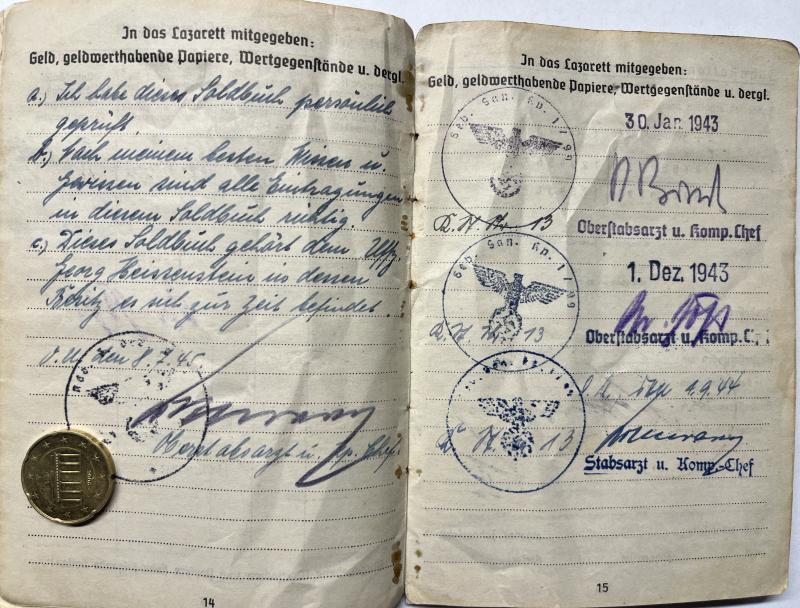 In das Lazarett mitgegeben:
Geld, geldwerthabende Papiere, Wertgegenstände u. dergl.
a.) Ich habe dieses Soldbuch persönlich
geprüft.
b.) Nach meinem besten Wissen u.
Gewissen sind alle Eintragungen
in diesem Soldbuch richtig.
c.) Dieses Soldbuch gehört dem Uffz.
Georg
in dessen
Besitz es sich zur Zeit befindet.
O.U. den 8. 45.
14
In das Lazarett mitgegeben:
Geld, geldwerthabende Papiere, Wertgegenstände u. dergl.
Geb. San. Kp. 1/99
30. Jan. 1943
13
Oberstabsarzt u. Komp. Chef
Geb. San. Kp. 1/99
1. Dez. 1943
13
Oberstabsarzt u. Komp.
1.9.44
13
Stabsarzt u. Komp.-Chef
15